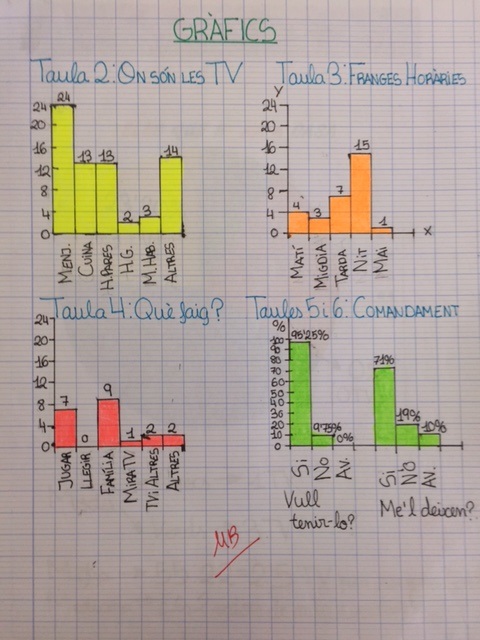 GRÀFICS
Taula 2: ON SÓN LES TV
24
24
20
16
12
8
4
0
13
13
2
3
14
MENJ.
CUINA
H.PARES
H.G.
M.HAB.
ALTRES
Taula 3: FRANGES HORÀRIES
Y
24
20
16
12
8
4
0
4
3
7
15
1
X
MATÍ
MIGDIA
TARDA
NIT
MAI
Taula 4: Què faig?
24
20
16
12
8
4
0
7
0
9
1
2
2
JUGAR
LLEGIR
FAMÍLIA
MIRA TV
TV i ALTRES
ALTRES
Taules 5 i 6: COMANDAMENT
%
100
90
80
70
60
50
40
30
20
10
0
95'25%
9'75%
0%
71%
19%
10%
Si
No
AV.
Si
No
AV.
Vull
tenir-lo?
Me'l deixen?
MB